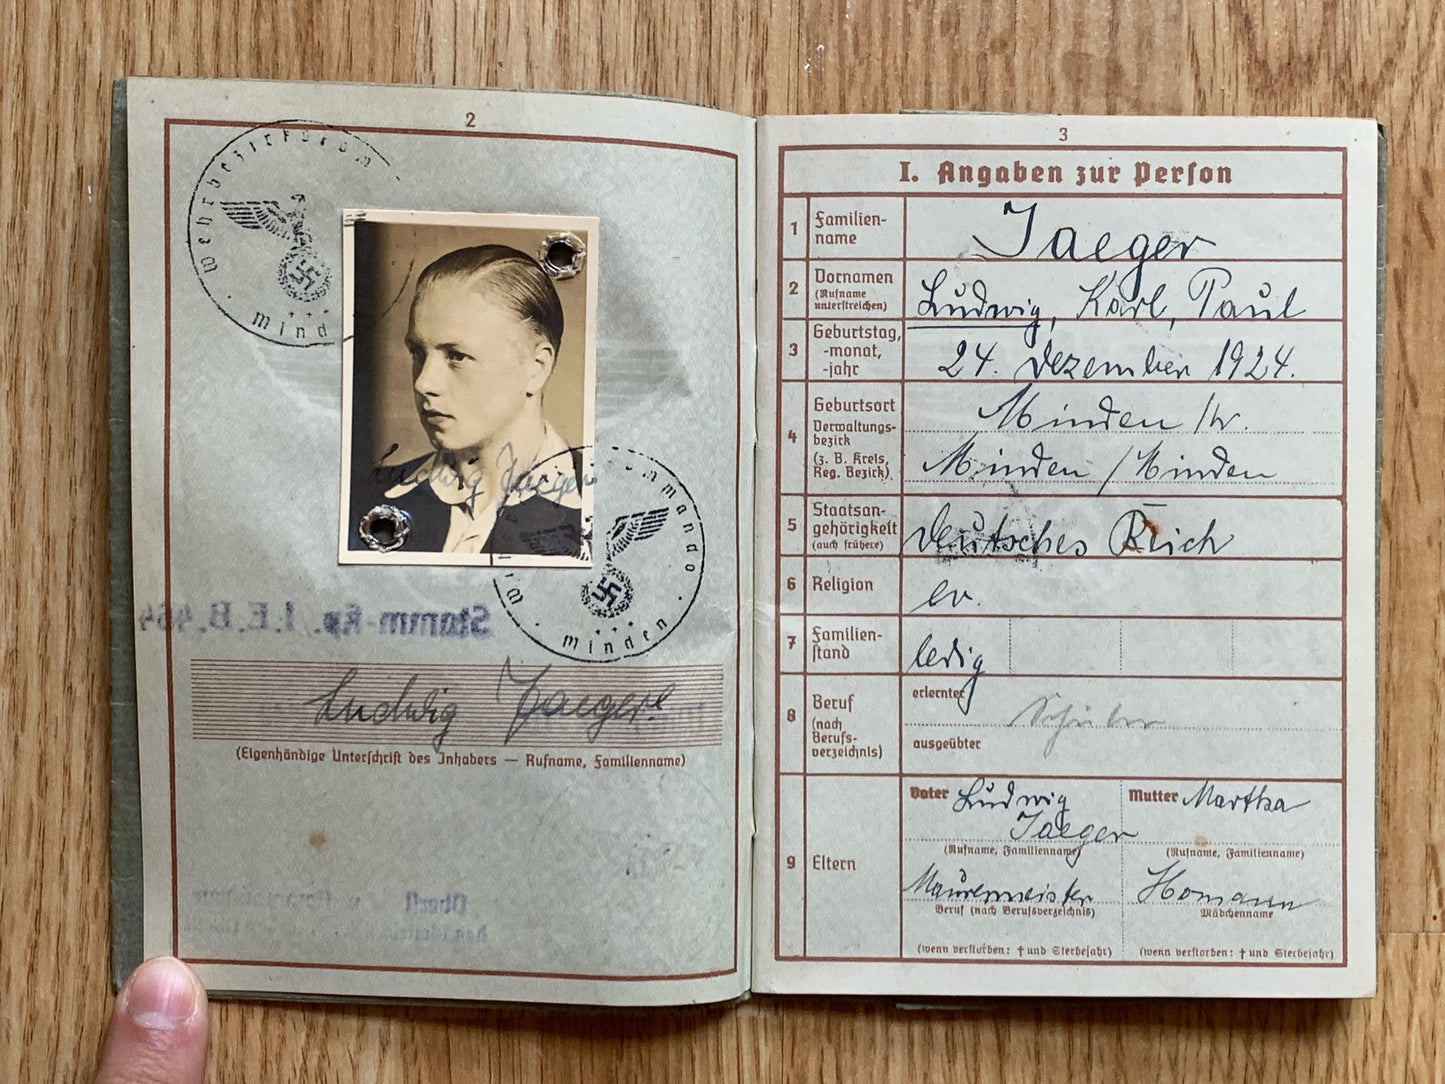 2
Wehrbezirkskom
Minden
Ludwig Jaeger
Wehrbezirkskommando
Minden
Stamm-Kp. I.E.B. 464
Ludwig Jaeger
(Eigenhändige Unterschrift des Inhabers — Rufname, Familienname)
Oberst
3
I. Angaben zur Person
1 Familien-
name
Jaeger
2 Vornamen
(Rufname
unterstreichen)
Ludwig, Karl, Paul
3 Geburtstag,
-monat,
-jahr
24. Dezember 1924.
4 Geburtsort
Verwaltungs-
bezirk
(z. B. Kreis,
Reg. Bezirk)
Minden /W.
Minden / Minden
5 Staatsan-
gehörigkeit
(auch frühere)
Deutsches Reich
6 Religion
ev.
7 Familien-
stand
ledig
8 Beruf
(nach
Berufs-
verzeichnis)
erlernter
Schüler
ausgeübter
9 Eltern
Vater Ludwig
Jaeger
(Rufname, Familienname)
Maurermeister
Beruf (nach Berufsverzeichnis)
(wenn verstorben: † und Sterbejahr)
Mutter Martha
(Rufname, Familienname)
Homann
Mädchenname
(wenn verstorben: † und Sterbejahr)